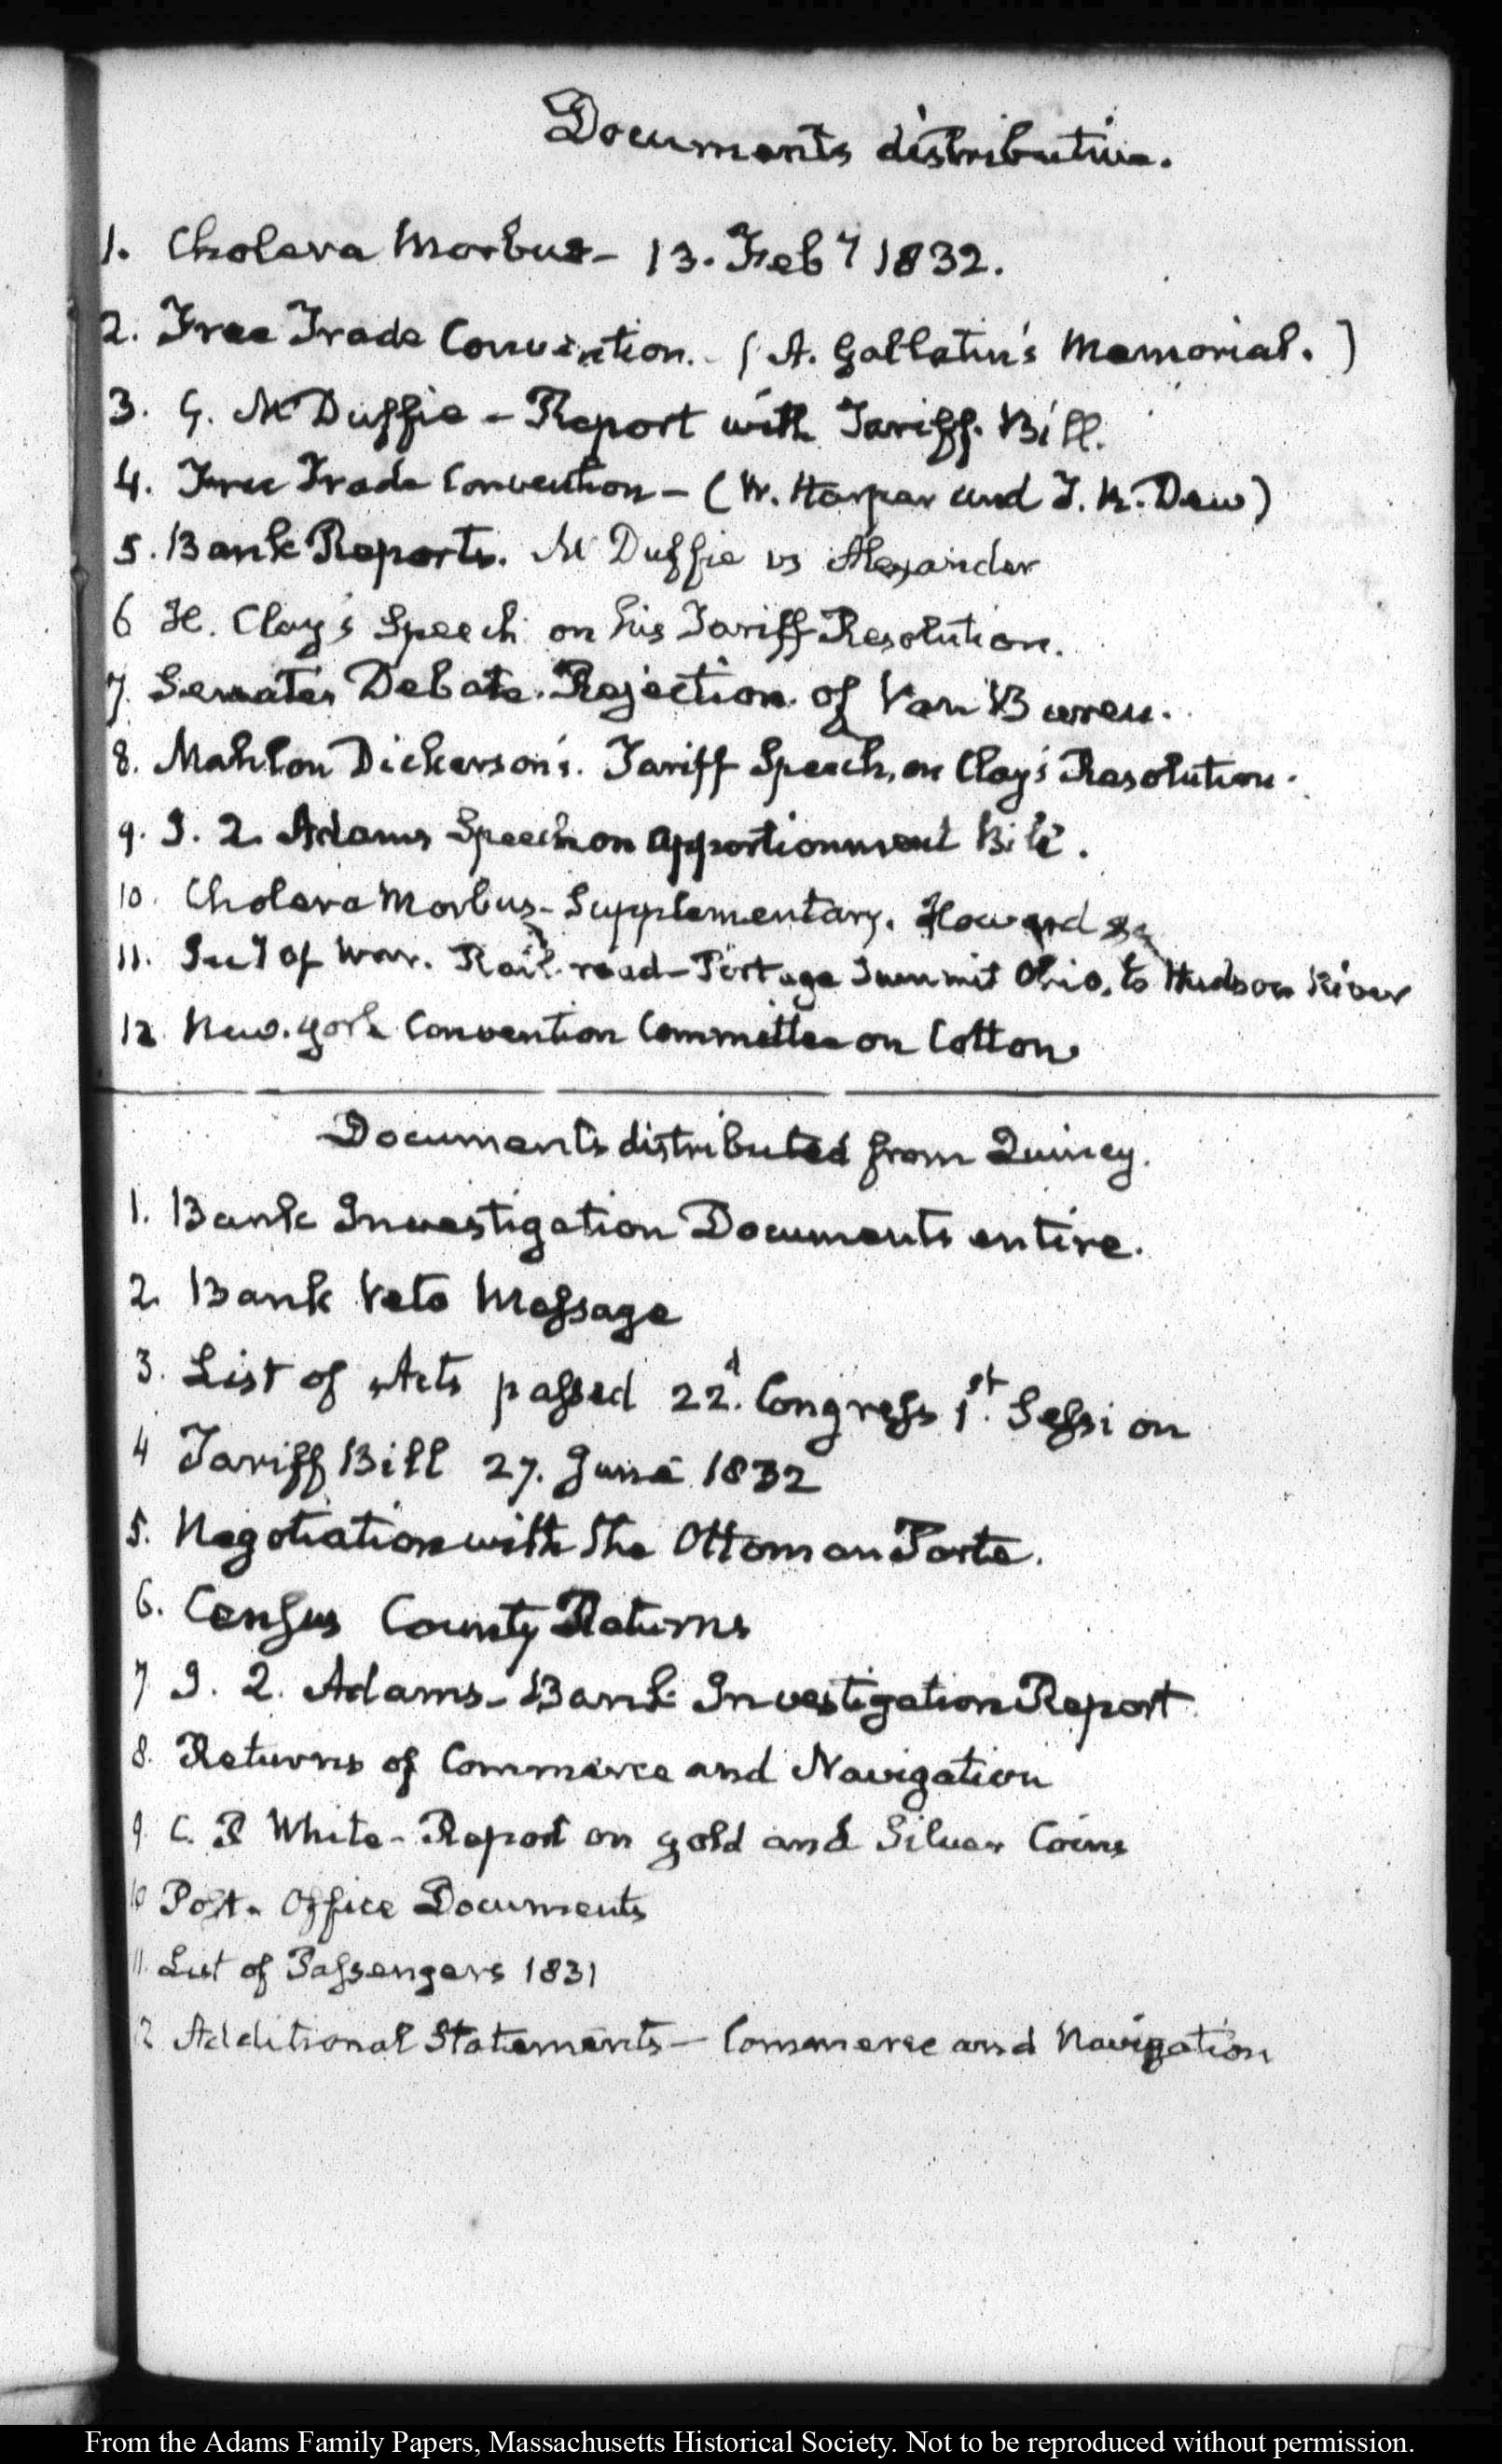 Documents distributive.
1. Cholera Morbus - 13. Feby 1832.
2. Free Trade Convention. - (A. Gallatin's Memorial.)
3. G. McDuffie - Report with Tariff. Bill.
4. Free Trade Convention - (W. Harper and T. R. Dew)
5. Bank Reports. McDuffie vs Alexander
6 H. Clay's Speech on his Tariff Resolution.
7. Senates Debate. Rejection of Van Buren.
8. Mahlon Dickerson's. Tariff Speech, on Clay's Resolution.
9. J. Q. Adams Speech on Apportionment Bill.
10. Cholera Morbus - Supplementary. Howard &c
11. Secy of War. Rail-road - Portage Summit Ohio, to Hudson River
12 New-York Convention Committee on Cotton
Documents distributed from Quincy.
1. Bank Investigation Documents entire.
2. Bank Veto Message
3. List of Acts passed 22d. Congress 1st. Session
4 Tariff Bill 27. June 1832
5. Negotiation with the Ottoman Porte.
6. Census County Returns
7 J. Q. Adams - Bank Investigation Report
8. Returns of Commerce and Navigation
9. C. P. White - Report on gold and Silver Coins
10 Post-Office Documents
11. List of Passengers 1831
12 Additional Statements - Commerce and Navigation
From the Adams Family Papers, Massachusetts Historical Society. Not to be reproduced without permission.